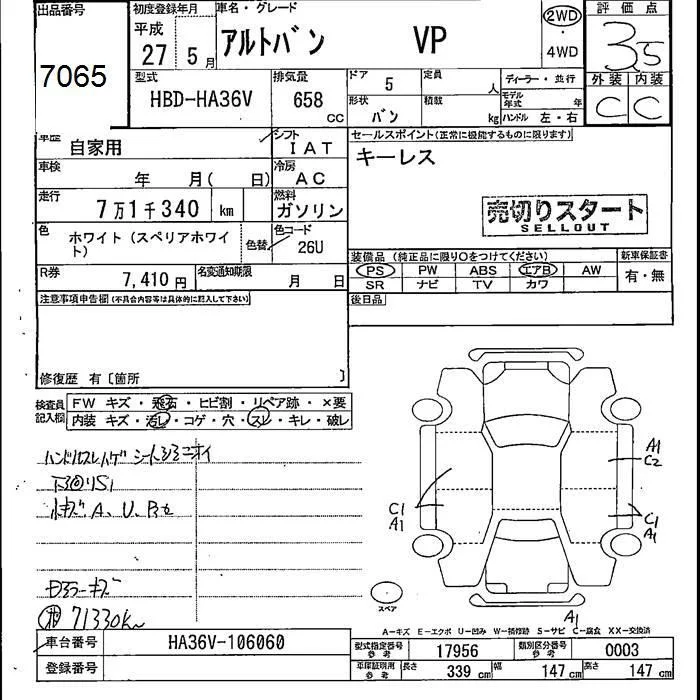 出品番号
7065
初度登録年月
平成
27 5月
車名・グレード
アルトバン VP
2WD
・
4WD
評価点
3.5
外装 内装
C C
型式
HBD-HA36V
排気量
658
CC
ドア 5
定員 人
形状 バン
積載 kg
ディーラー・並行
モデル年式 年
ハンドル 左・右
車歴
自家用
シフト
IAT
車検
年 月( 日)
冷房
AC
走行
7万1千340 km
燃料
ガソリン
色
ホワイト(スペリアホワイト)
色替
色コード
26U
R券
7,410円
名変通知期限
月 日
セールスポイント(正常に機能するものに限ります)
キーレス
売切りスタート
SELLOUT
装備品 (純正品に限り○をつけてください)
PS PW ABS エアB AW
SR ナビ TV カワ
新車保証書
有・無
後日品
注意事項申告欄(不具合内容等は具体的に記入して下さい)
修復歴 有〔箇所 〕
検査員記入欄
FW キズ・飛石・ヒビ割・リペア跡・×要
内装 キズ・汚れ・コゲ・穴・スレ・キレ・破レ
ハンドルスレハゲ シートシミ ニオイ
下回りS1
小キズA、U、
ミラーキズ
71330km
A1
C2
C1
A1
C1
A1
A1
スペア
A-キズ E-エクボ U-凹み W-補修跡 S-サビ C-腐食 XX-交換済
車台番号
HA36V-106060
登録番号
型式指定番号
参考
17956
類別区分番号
参考
0003
車庫証明用
参考
長さ 339 cm 幅 147 cm 高さ 147 cm